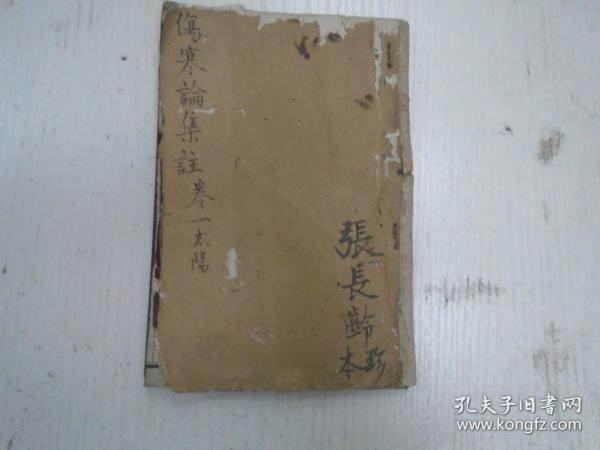 傷寒論集註卷一太陽
張長齡珍本
孔夫子旧书网
www.kongfz.com